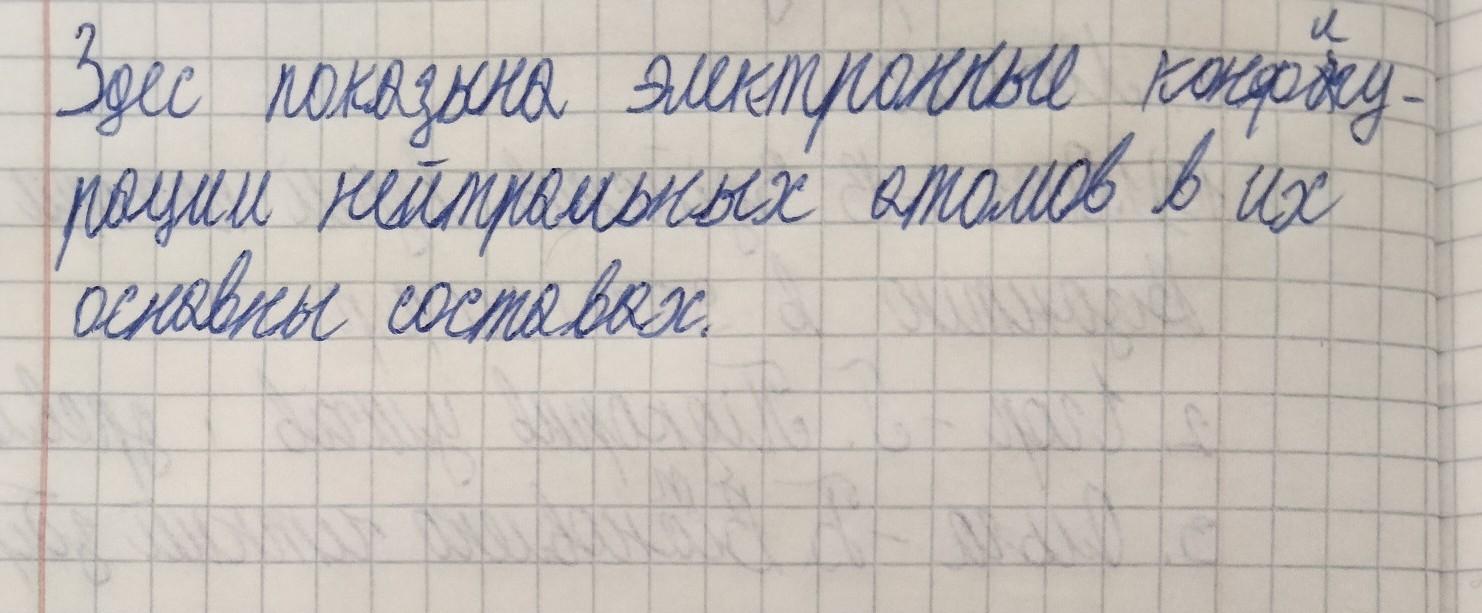 Здес показына электронные конфигу-
рации нейтральных атомов в их
основны составах.